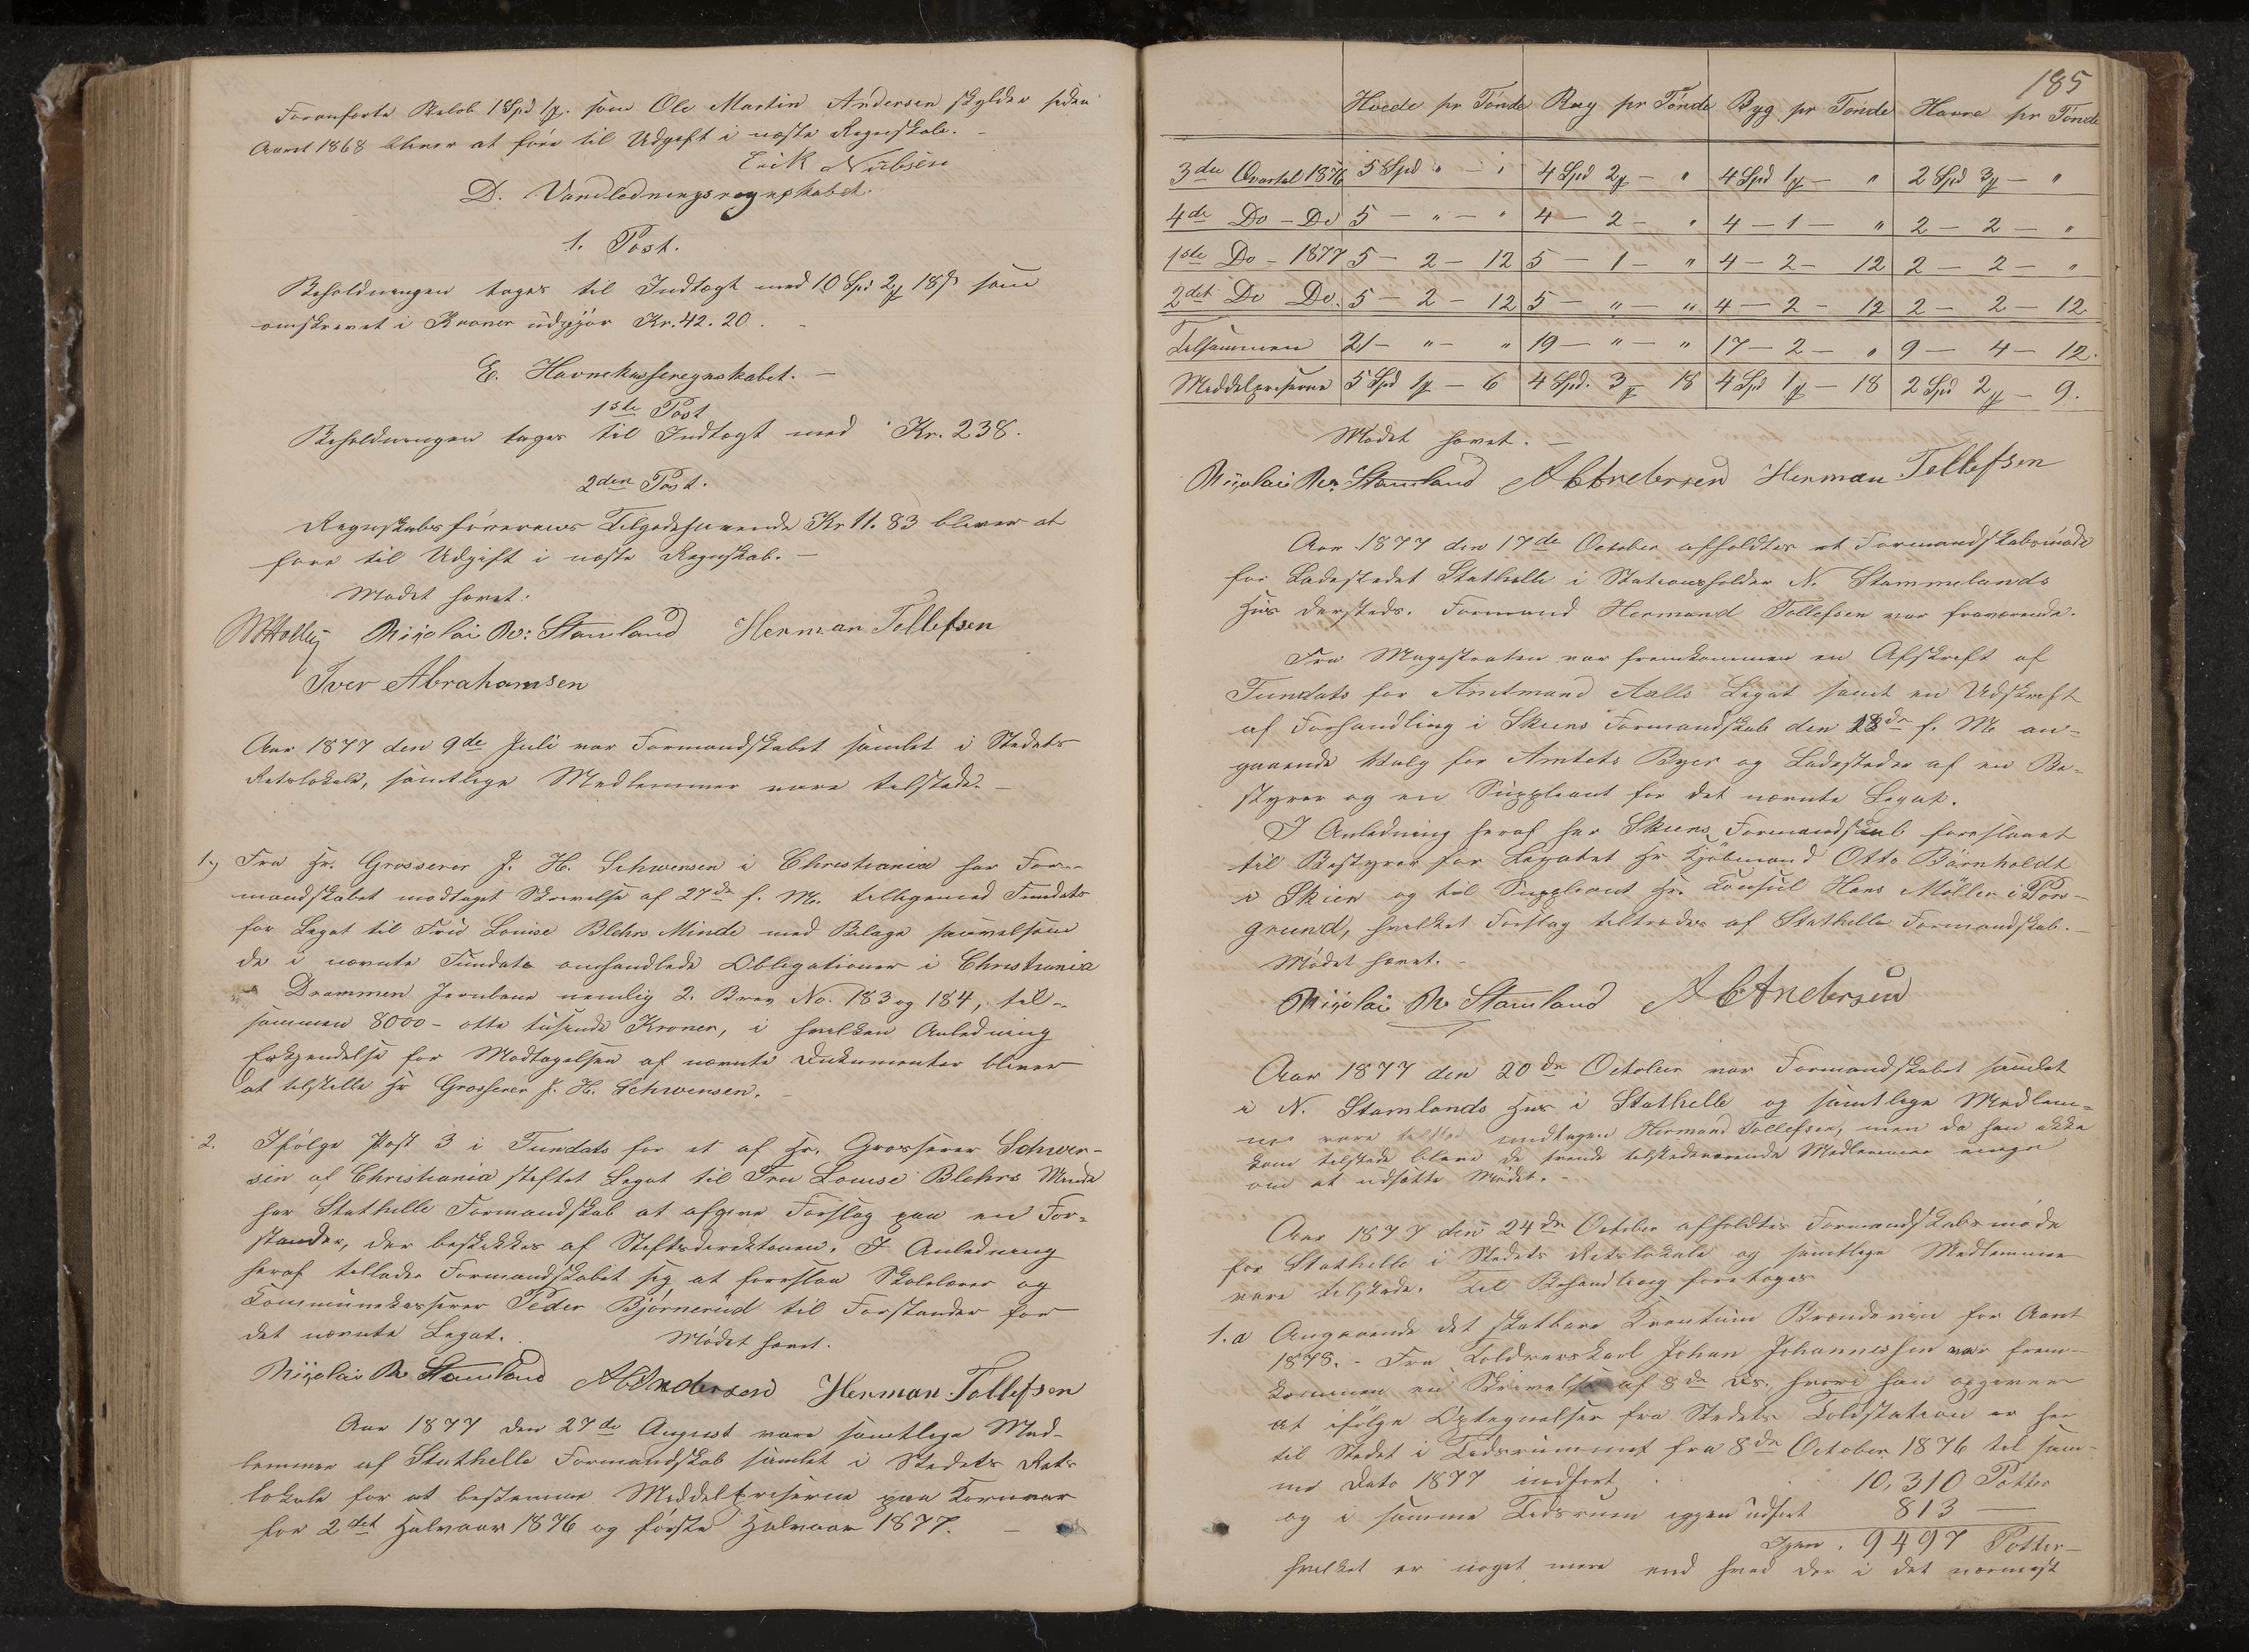 Foranførte Beløb 1 Spd 1 ß. som Ole Martin Andersen skylder siden
Aaret 1868 bliver at føre til Udgift i næste Regnskab. –
Erik Nilsen
D. Vandledningsregnskabet.
1. Post.
Beholdningen tages til Indtægt med 10 Spd 2 18 ß som
omskrevet i Kroner udgjør Kr. 42. 20. –
E. Havnekasseregnskabet. –
1ste Post
Beholdningen tages til Indtægt med Kr. 238.
2den Post.
Regnskabsførerens Tilgodehavende Kr 11. 83 bliver at
føre til Udgift i næste Regnskab. –
Mødet hævet.
Nicolai Stamland Herman Tollefsen
Iver Abrahamsen
Aar 1877 den 9de Juli var Formandskabet samlet i Stedets
Retslokale, samtlige Medlemmer vare tilstede. –
1.) Fra Hr. Grosserer J. H. Schwensen i Christiania har For-
mandskabet modtaget Skrivelse af 27de f. M. tilligemed Fundats
for Legat til Fru Louise Blehrs Minde med Bilage saavelsom
de i nævnte Fundats omhandlede Obligationer i Christiania
Drammen Jernbane nemlig 2. Brev No. 183 og 184, til-
sammen 8000 – otte tusende Kroner, i hvilken Anledning
Erkjendelse for Modtagelsen af nævnte Dokumenter bliver
at tilstille Hr Grosserer J. H. Schwensen. –
2. Ifølge Post 3 i Fundats for et af Hr. Grosserer Schwen-
sen af Christiania stiftet Legat til Fru Louise Blehrs Minde
har Stathelle Formandskab at afgive Forslag paa en For-
stander, der beskikkes af Stiftsdirektionen. I Anledning
heraf tillader Formandskabet sig at foreslaa Skolelærer og
Kommunekasserer Peder Bjørnerud til Forstander for
det nævnte Legat. Mødet hævet.
Nicolai Stamland A Andersen Herman Tollefsen
Aar 1877 den 27de August vare samtlige Med-
lemmer af Stathelle Formandskab samlet i Stedets Rets
lokale for at bestemme Middelpriserne paa Kornvar
for 2det Halvaar 1876 og første Halvaar 1877. –
185
Hvede pr Tønde Rug pr Tønde Byg pr Tønde Havre pr Tønde
3die Qvartal 1876 5 Spd " – " 4 Spd 2 ß – " 4 Spd 1 ß – " 2 Spd 3 ß – "
4de Do – Do 5 – " – " 4 – 2 – " 4 – 1 – " 2 – 2 – "
1ste Do – 1877 5 – 2 – 12 5 – 1 – " 4 – 2 – 12 2 – 2 – "
2det Do Do. 5 – 2 – 12 5 – " – " 4 – 2 – 12 2 – 2 – 12
Tilsammen 21 – " – " 19 – " – " 17 – 2 – " 9 – 4 – 12.
Middelpriserne 5 Spd 1 ß – 6 4 Spd. 3 ß 18 4 Spd 1 ß – 18 2 Spd 2 ß – 9.
Mødet hævet. –
Nicolai Stamland A Andersen Herman Tollefsen
Aar 1877 den 17de October afholdtes et Formandskabsmøde
for Ladestedet Stathelle i Stationsholder N. Stammelands
Hus dersteds. Formand Hermand Tollefsen var fraværende.
Fra Magistraten var fremkommen en Afskrift af
Fundats for Amtmand Aalls Legat samt en Udskrift
af Forhandling i Skiens Formandskab den 18de f. M. an-
gaaende Valg for Amtets Byer og Ladesteder af en Be-
styrer og en Suppleant for det nævnte Legat.
I Anledning heraf har Skiens Formandskab foreslaaet
til Bestyrer for Legatet Hr Kjøbmand Otto Bårnholdt
i Skien og til Suppleant Hr. Konsul Hans Møller i Pors-
grund, hvilket Forslag tiltrædes af Stathelle Formandskab. –
Mødet hævet. –
Nicolai Stamland A Andersen
Aar 1877 den 20de October var Formandskabet samlet
i N. Stamlands Hus i Stathelle og samtlige Medlem-
mer vare tilstede undtagen Hermand Tollefsen, men da han ikke
kom tilstede bleve de trende tilstedeværende Medlemmer enige
om at udsætte Mødet. –
Aar 1877 den 24de October afholdtes Formandskabsmøde
for Stathelle i Stedets Retslokale og samtlige Medlemmer
vare tilstede. Til Behandling foretoges
1. a Angaaende det skatbare Kvantum Brændeviin for Aaret
1878. – Fra Toldoverskarl Johan Johannessen var frem-
kommen en Skrivelse af 8de ds. hvori han opgiver
at ifølge Optegnelser fra Stedets Toldstation er her
til Stedet i Tidsrummet fra 8de October 1876 til sam-
me Dato 1877 indført 10,310 Potter
og i samme Tidsrum igjen udført 813 –
Igjen. 9497 Potter –
hvilket er noget mere end hvad der i det nærmest